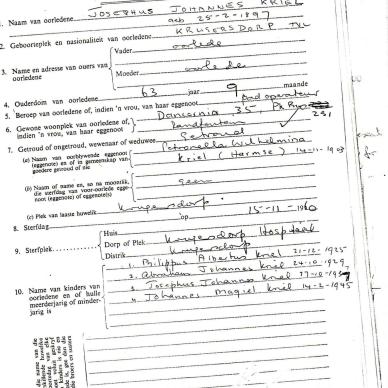 1. Naam van oorledene JOSEPHUS JOHANNES KRIEL
geb 25-2-1897
2. Geboorteplek en nasionaliteit van oorledene KRUGERSDORP TVL
3. Naam en adresse van ouers van oorledene
Vader oorlede
Moeder oorlede
4. Ouderdom van oorledene 63 jaar 9 maande
5. Beroep van oorledene of, indien 'n vrou, van haar eggenoot
6. Gewone woonplek van oorledene of, indien 'n vrou, van haar eggenoot 35,
Randfontein
7. Getroud of ongetroud, wewenaar of weduwee Getroud
(a) Naam van oorblywende eggenoot (eggenote) en of in gemeenskap van goedere getroud of nie
Petronella Wilhelmina
Kriel (Harmse) 14-11-1903
(b) Naam of name en, so na moontlik, die sterfdag van vooroorlede eggenoot (eggenote) of eggenote(s) geen
(c) Plek van laaste huwelik Krugersdorp
8. Sterfdag op 15-11-1960
9. Sterfplek
Huis
Dorp of Plek Krugersdorp Hospitaal
Distrik Krugersdorp
10. Name van kinders van oorledene en of hulle meerderjarig of minderjarig is
1. Philippus Albertus Kriel 21-12-1925
2. Abraham Johannes Kriel 24-10-1929
3. Josephus Johannes Kriel
4. Johannes Magiel Kriel 14-2-1945